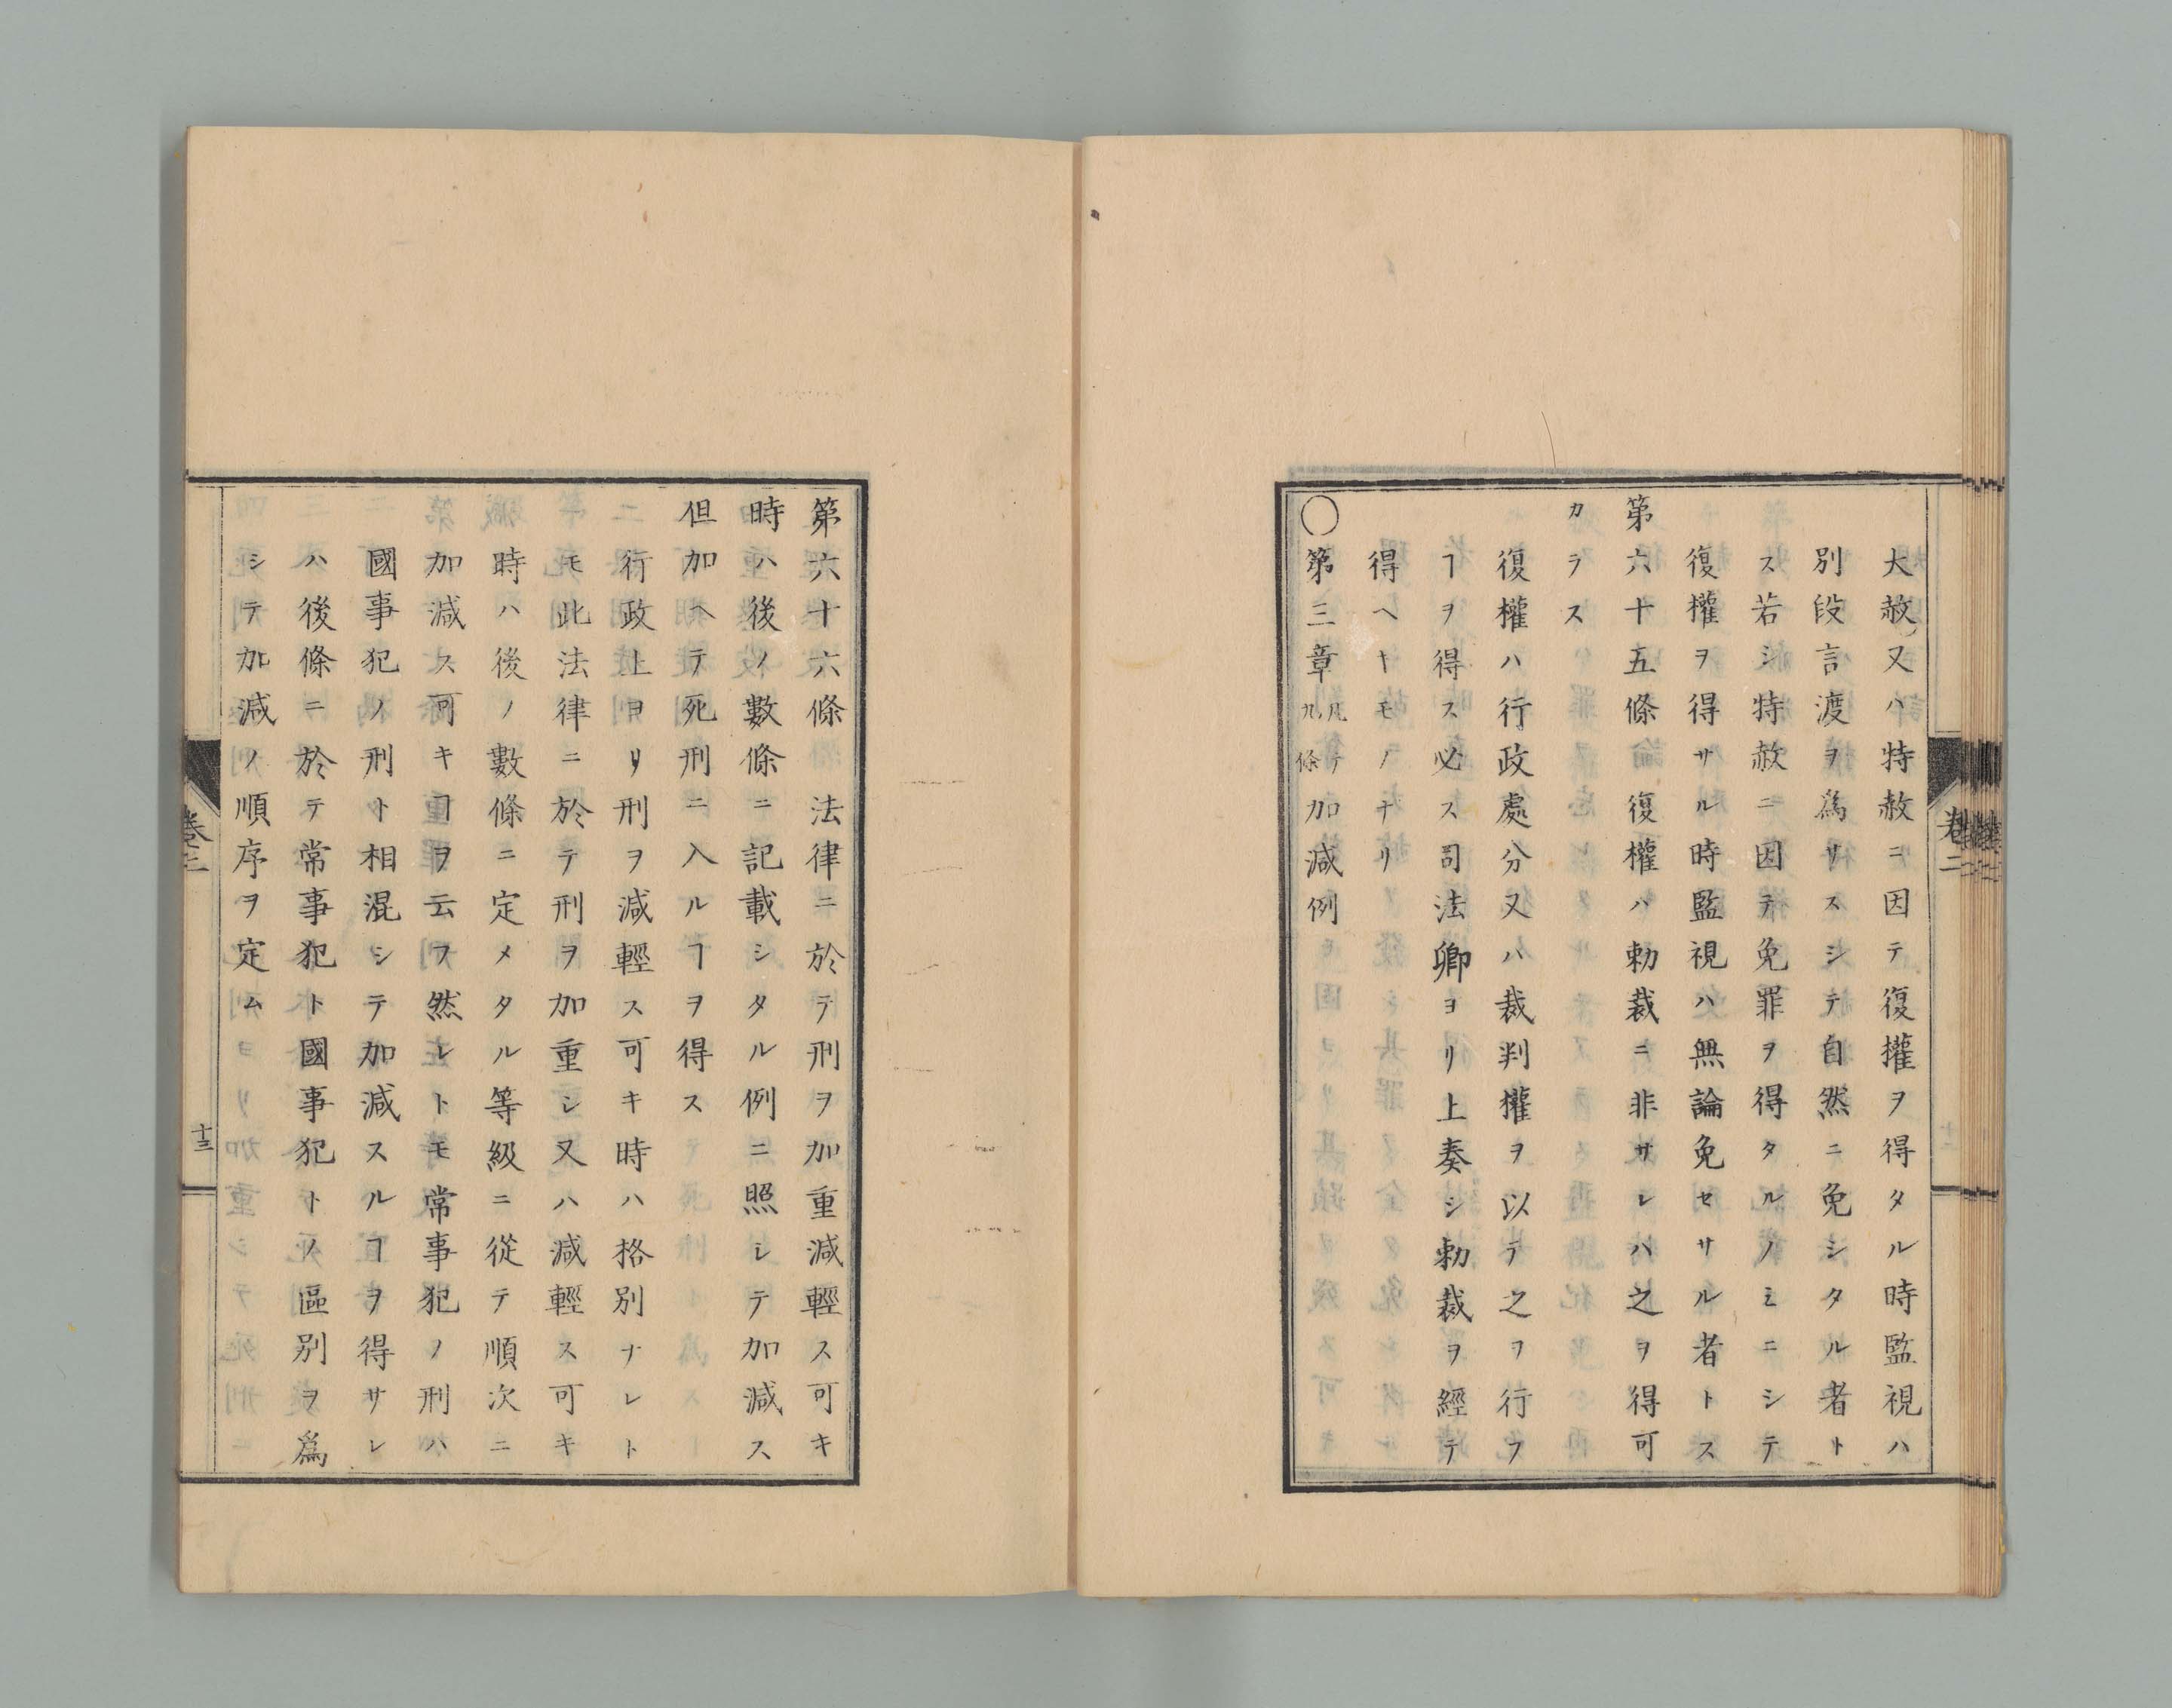 大赦又ハ特赦ニ因テ復權ヲ得タル時監視ハ
別段言渡ヲ爲サスシテ自然ニ免シタル者ト
ス若シ特赦ニ因テ免罪ヲ得タルノミニシテ
復權ヲ得サル時監視ハ無論免セサル者トス
第六十五條 復權ハ勅裁ニ非サレハ之ヲ得可
カラス
復權ハ行政處分又ハ裁判權ヲ以テ之ヲ行フ
ヿヲ得ス必ス司法卿ヨリ上奏シ勅裁ヲ經テ
得ヘキモノナリ
○第三章 凡テ九條 加減例
卷二
第六十六條 法律ニ於テ刑ヲ加重減輕ス可キ
時ハ後ノ數條ニ記載シタル例ニ照シテ加減ス
但加ヘテ死刑ニ入ルヿヲ得ス
行政上ヨリ刑ヲ減輕ス可キ時ハ格別ナレト
モ此法律ニ於テ刑ヲ加重シ又ハ減輕ス可キ
時ハ後ノ數條ニ定メタル等級ニ從テ順次ニ
加減ス可キヿヲ云フ然レトモ常事犯ノ刑ハ
國事犯ノ刑ト相混シテ加減スルヿヲ得サレ
ハ後條ニ於テ常事犯ト國事犯トノ區別ヲ爲
シテ加減ノ順序ヲ定ム
卷二
十三